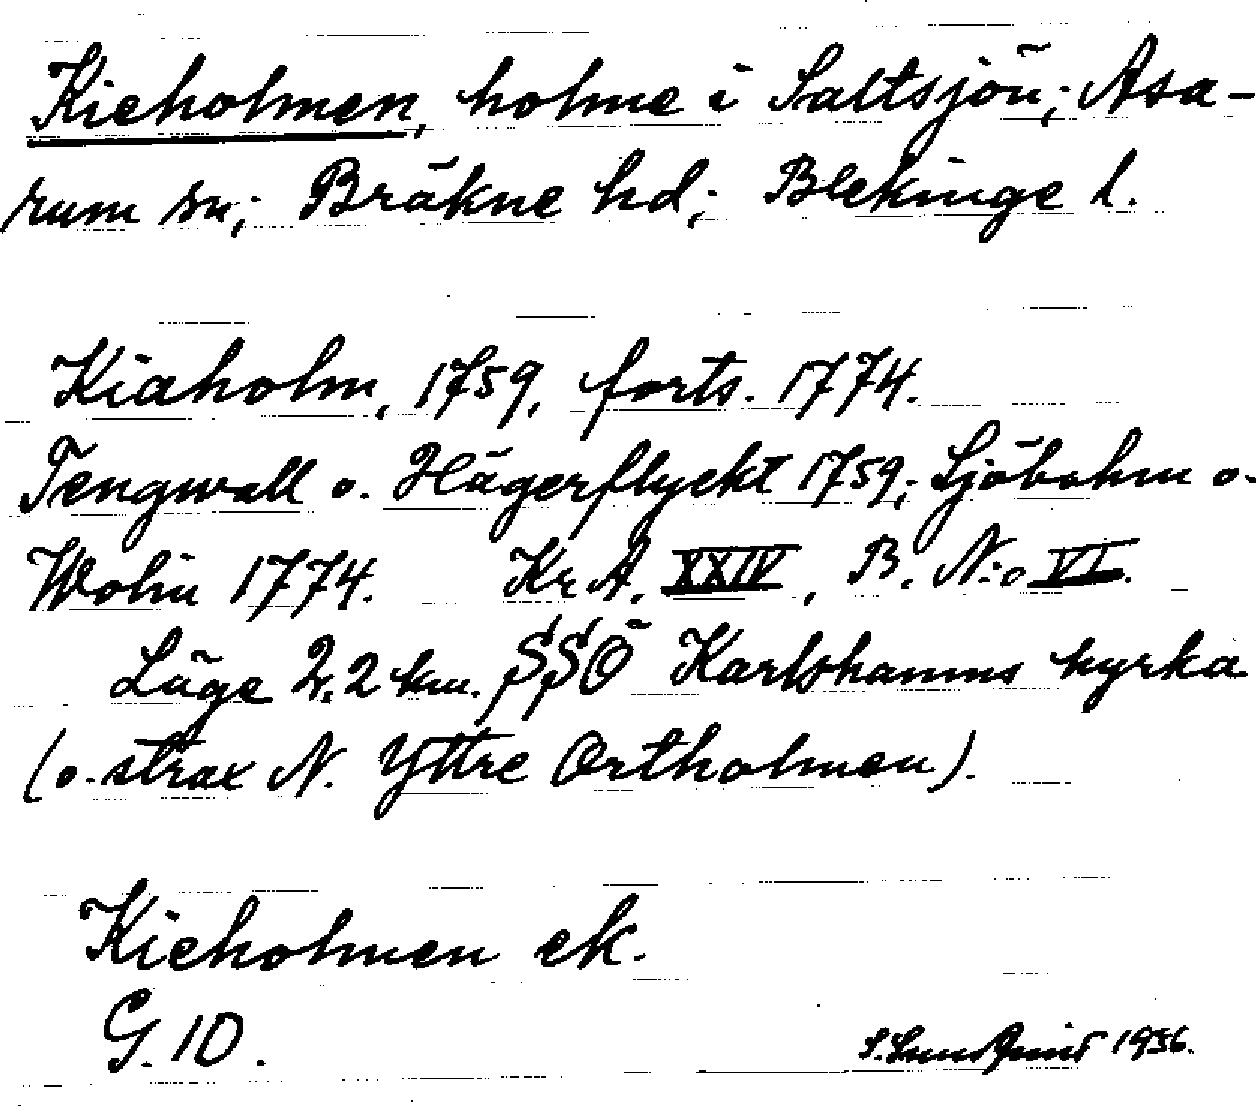 Kieholmen, holme i Saltsjön; Asa-
rum sn; Bräkne hd; Blekinge l.
Kiaholm, 1759, forts. 1774.
Tengwall o. Hägerflyckt 1759; Sjöbohm o.
Wohn 1774. Kr A. XXIV, B. N:o VI.
Läge 2,2 km. SSÖ Karlshamns kyrka
(o. strax N. Yttre Ortholmen).
Kieholmen ek.
G. 10.
S. Lundquist 1936.